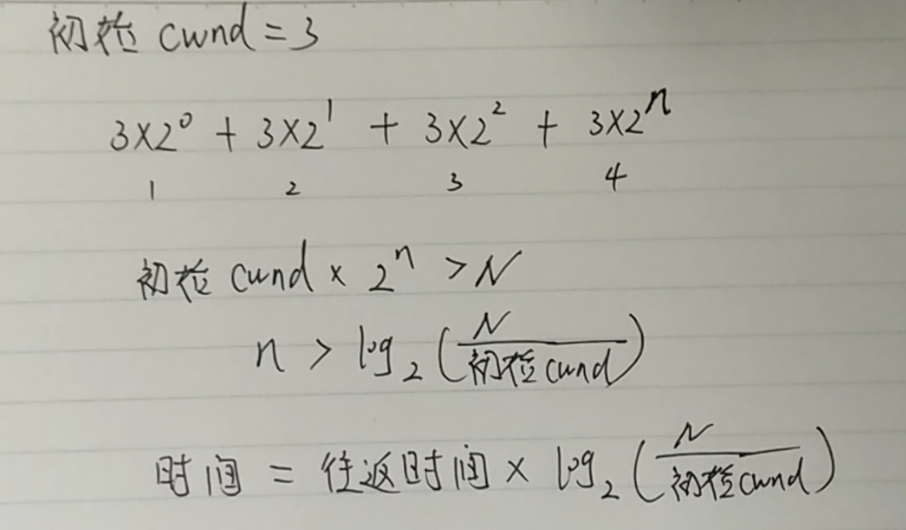 初始 cwnd = 3
3×2⁰ + 3×2¹ + 3×2² + 3×2ⁿ
1 2 3 4
初始 cwnd × 2ⁿ > N
n > log₂(N/初始cwnd)
时间 = 往返时间 × log₂(N/初始cwnd)